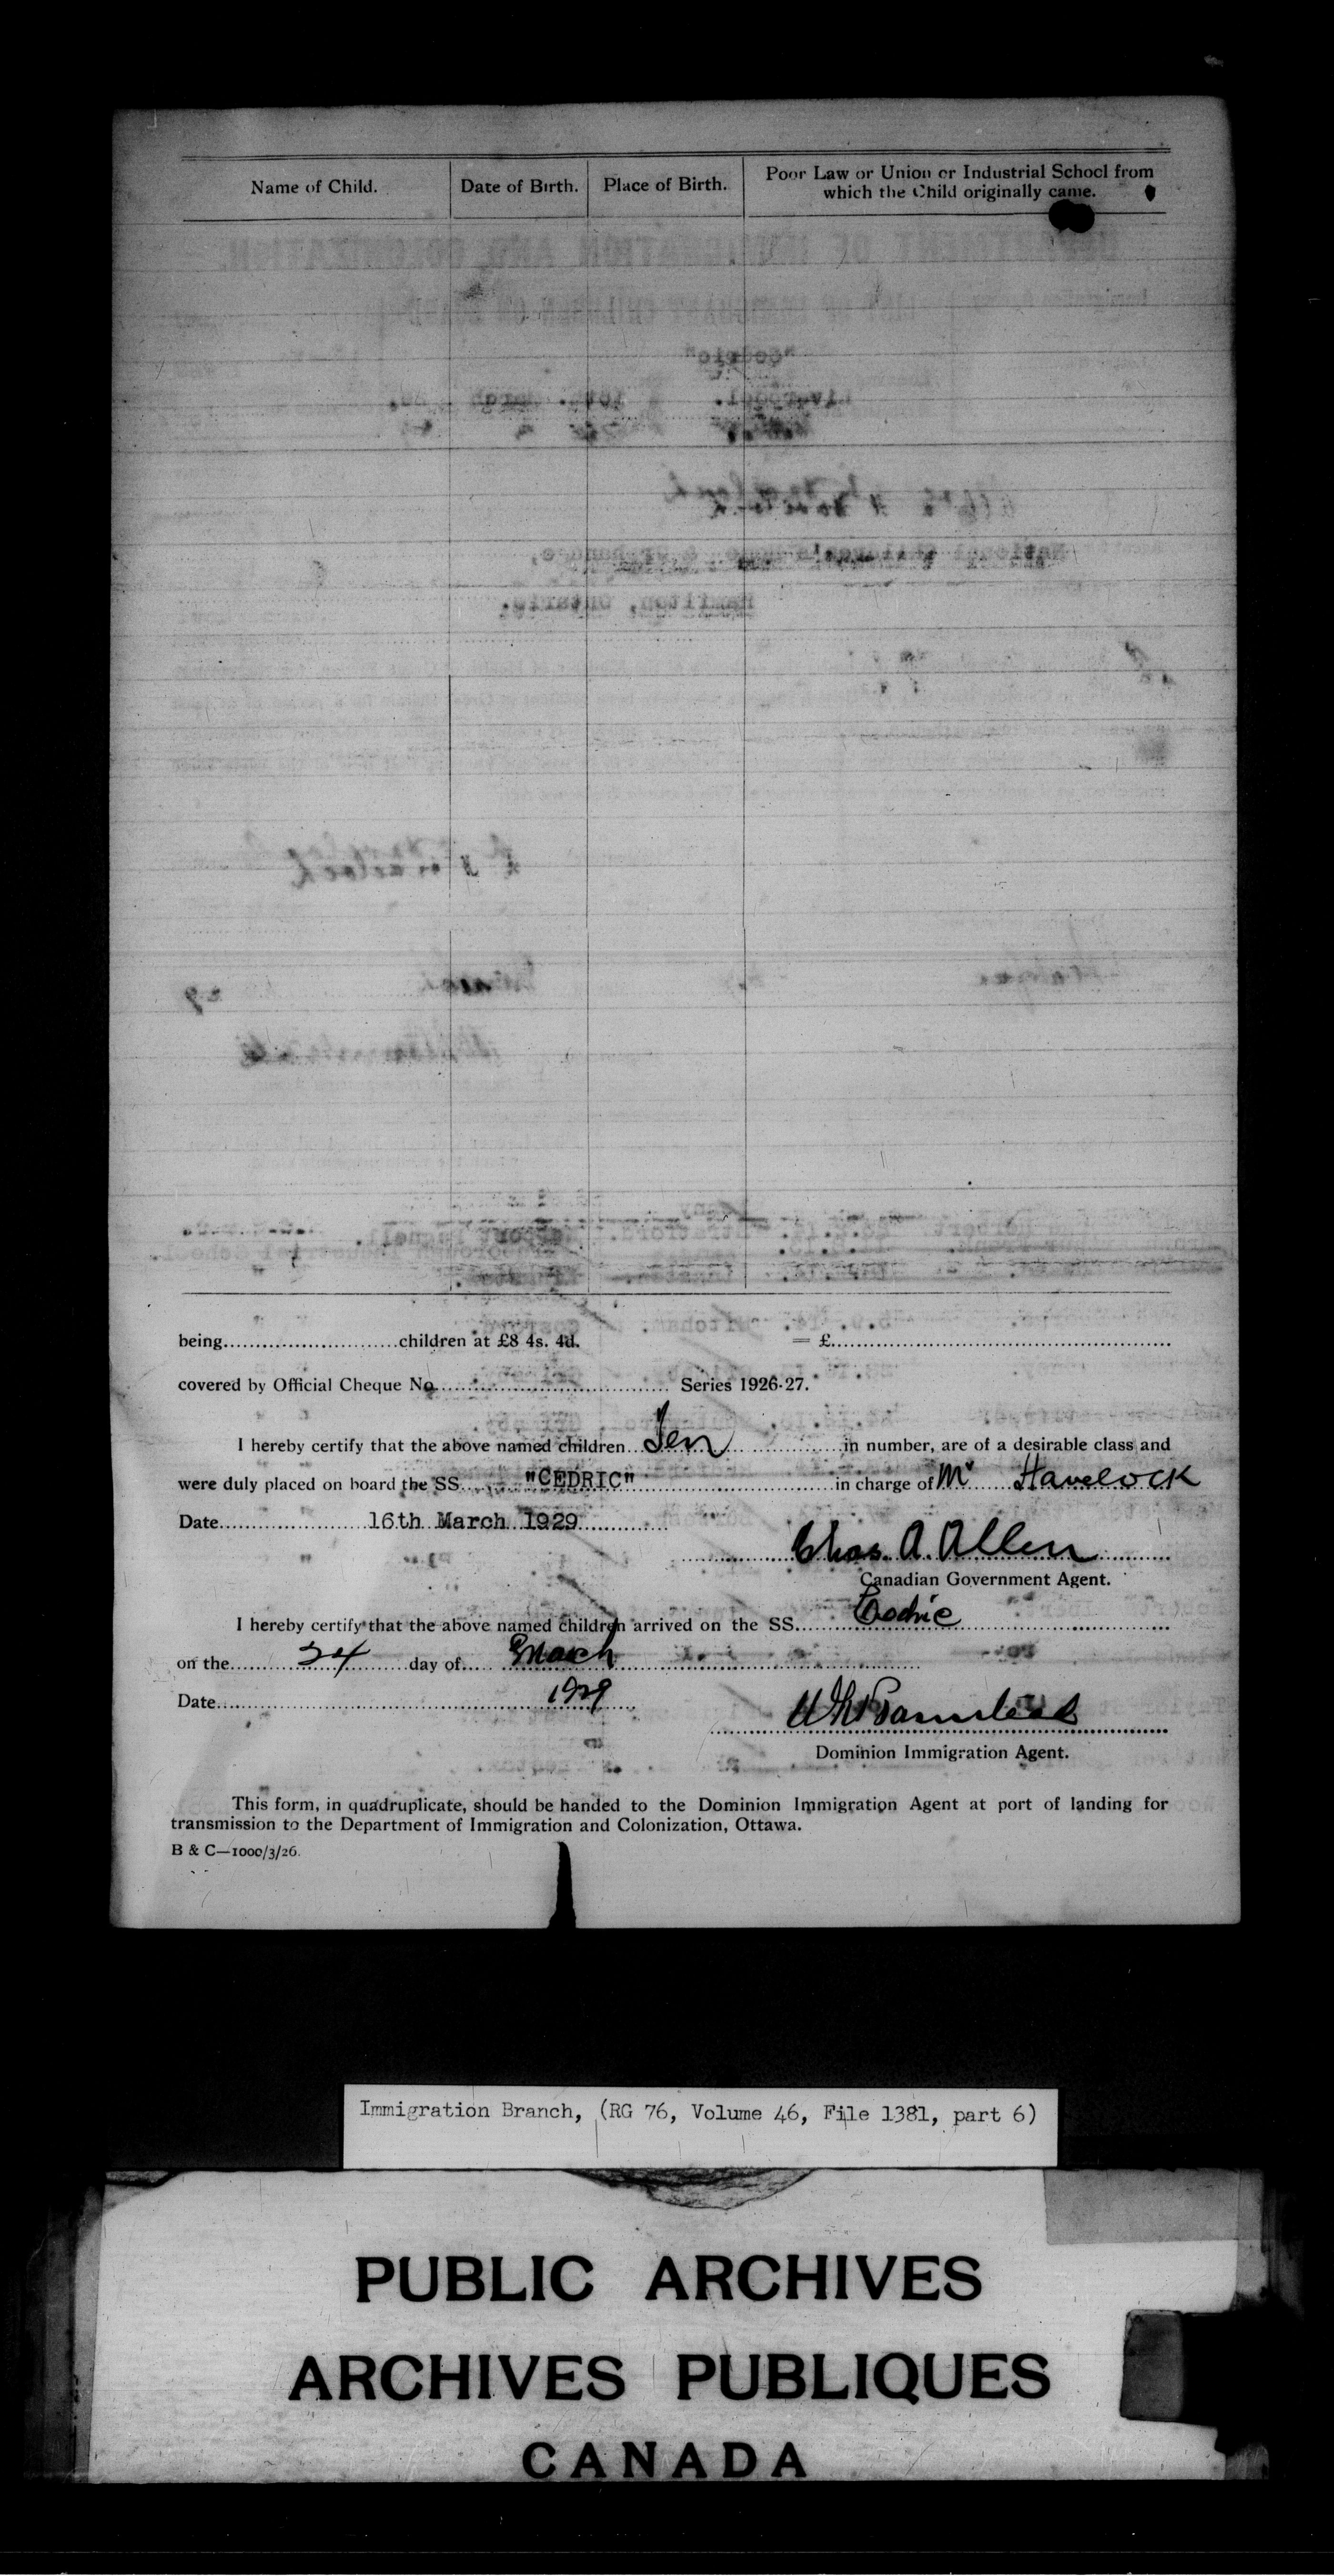 Name of Child. Date of Birth. Place of Birth. Poor Law or Union or Industrial School from
which the Child originally came.
being..........................children at £8 4s. 4d. = £..........................
covered by Official Cheque No.......................... Series 1926-27.
I hereby certify that the above named children...Ten..........in number, are of a desirable class and
were duly placed on board the SS......"CEDRIC"..........................in charge of Mr Havelock
Date......................16th March 1929..............
Chas. A. Allen
Canadian Government Agent.
I hereby certify that the above named children arrived on the SS......Cedric..........
on the..........24..........day of.....March..........................
Date..........................1929
Dominion Immigration Agent.
This form, in quadruplicate, should be handed to the Dominion Immigration Agent at port of landing for
transmission to the Department of Immigration and Colonization, Ottawa.
B & C—1000/3/26.
Immigration Branch, (RG 76, Volume 46, File 1381, part 6)
PUBLIC ARCHIVES
ARCHIVES PUBLIQUES
CANADA